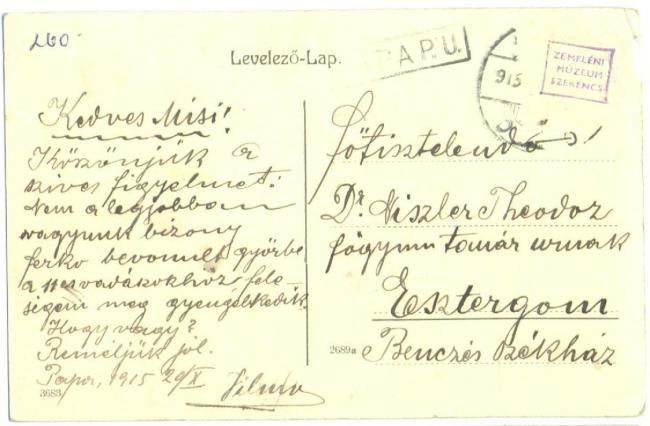 260
Levelező-Lap.
PAPU.
915
ZEMPLÉNI
MÚZEUM
SZERENCS
Kedves Misi!
Köszönjük a
szives figyelmet:
Nem a legjobban
vagyunk bizony
ferko bevonult győrbe
a 11es vadászokhoz, fele-
ségem meg gyengélkedik.
Hogy vagy?
Reméljük jól.
Papa, 1915 29/X
Vilmos
3683
Főtisztelendő
Dr. Niszler Theodoz
főgymn tanár urnak
Esztergom
2689a Benczés Székház